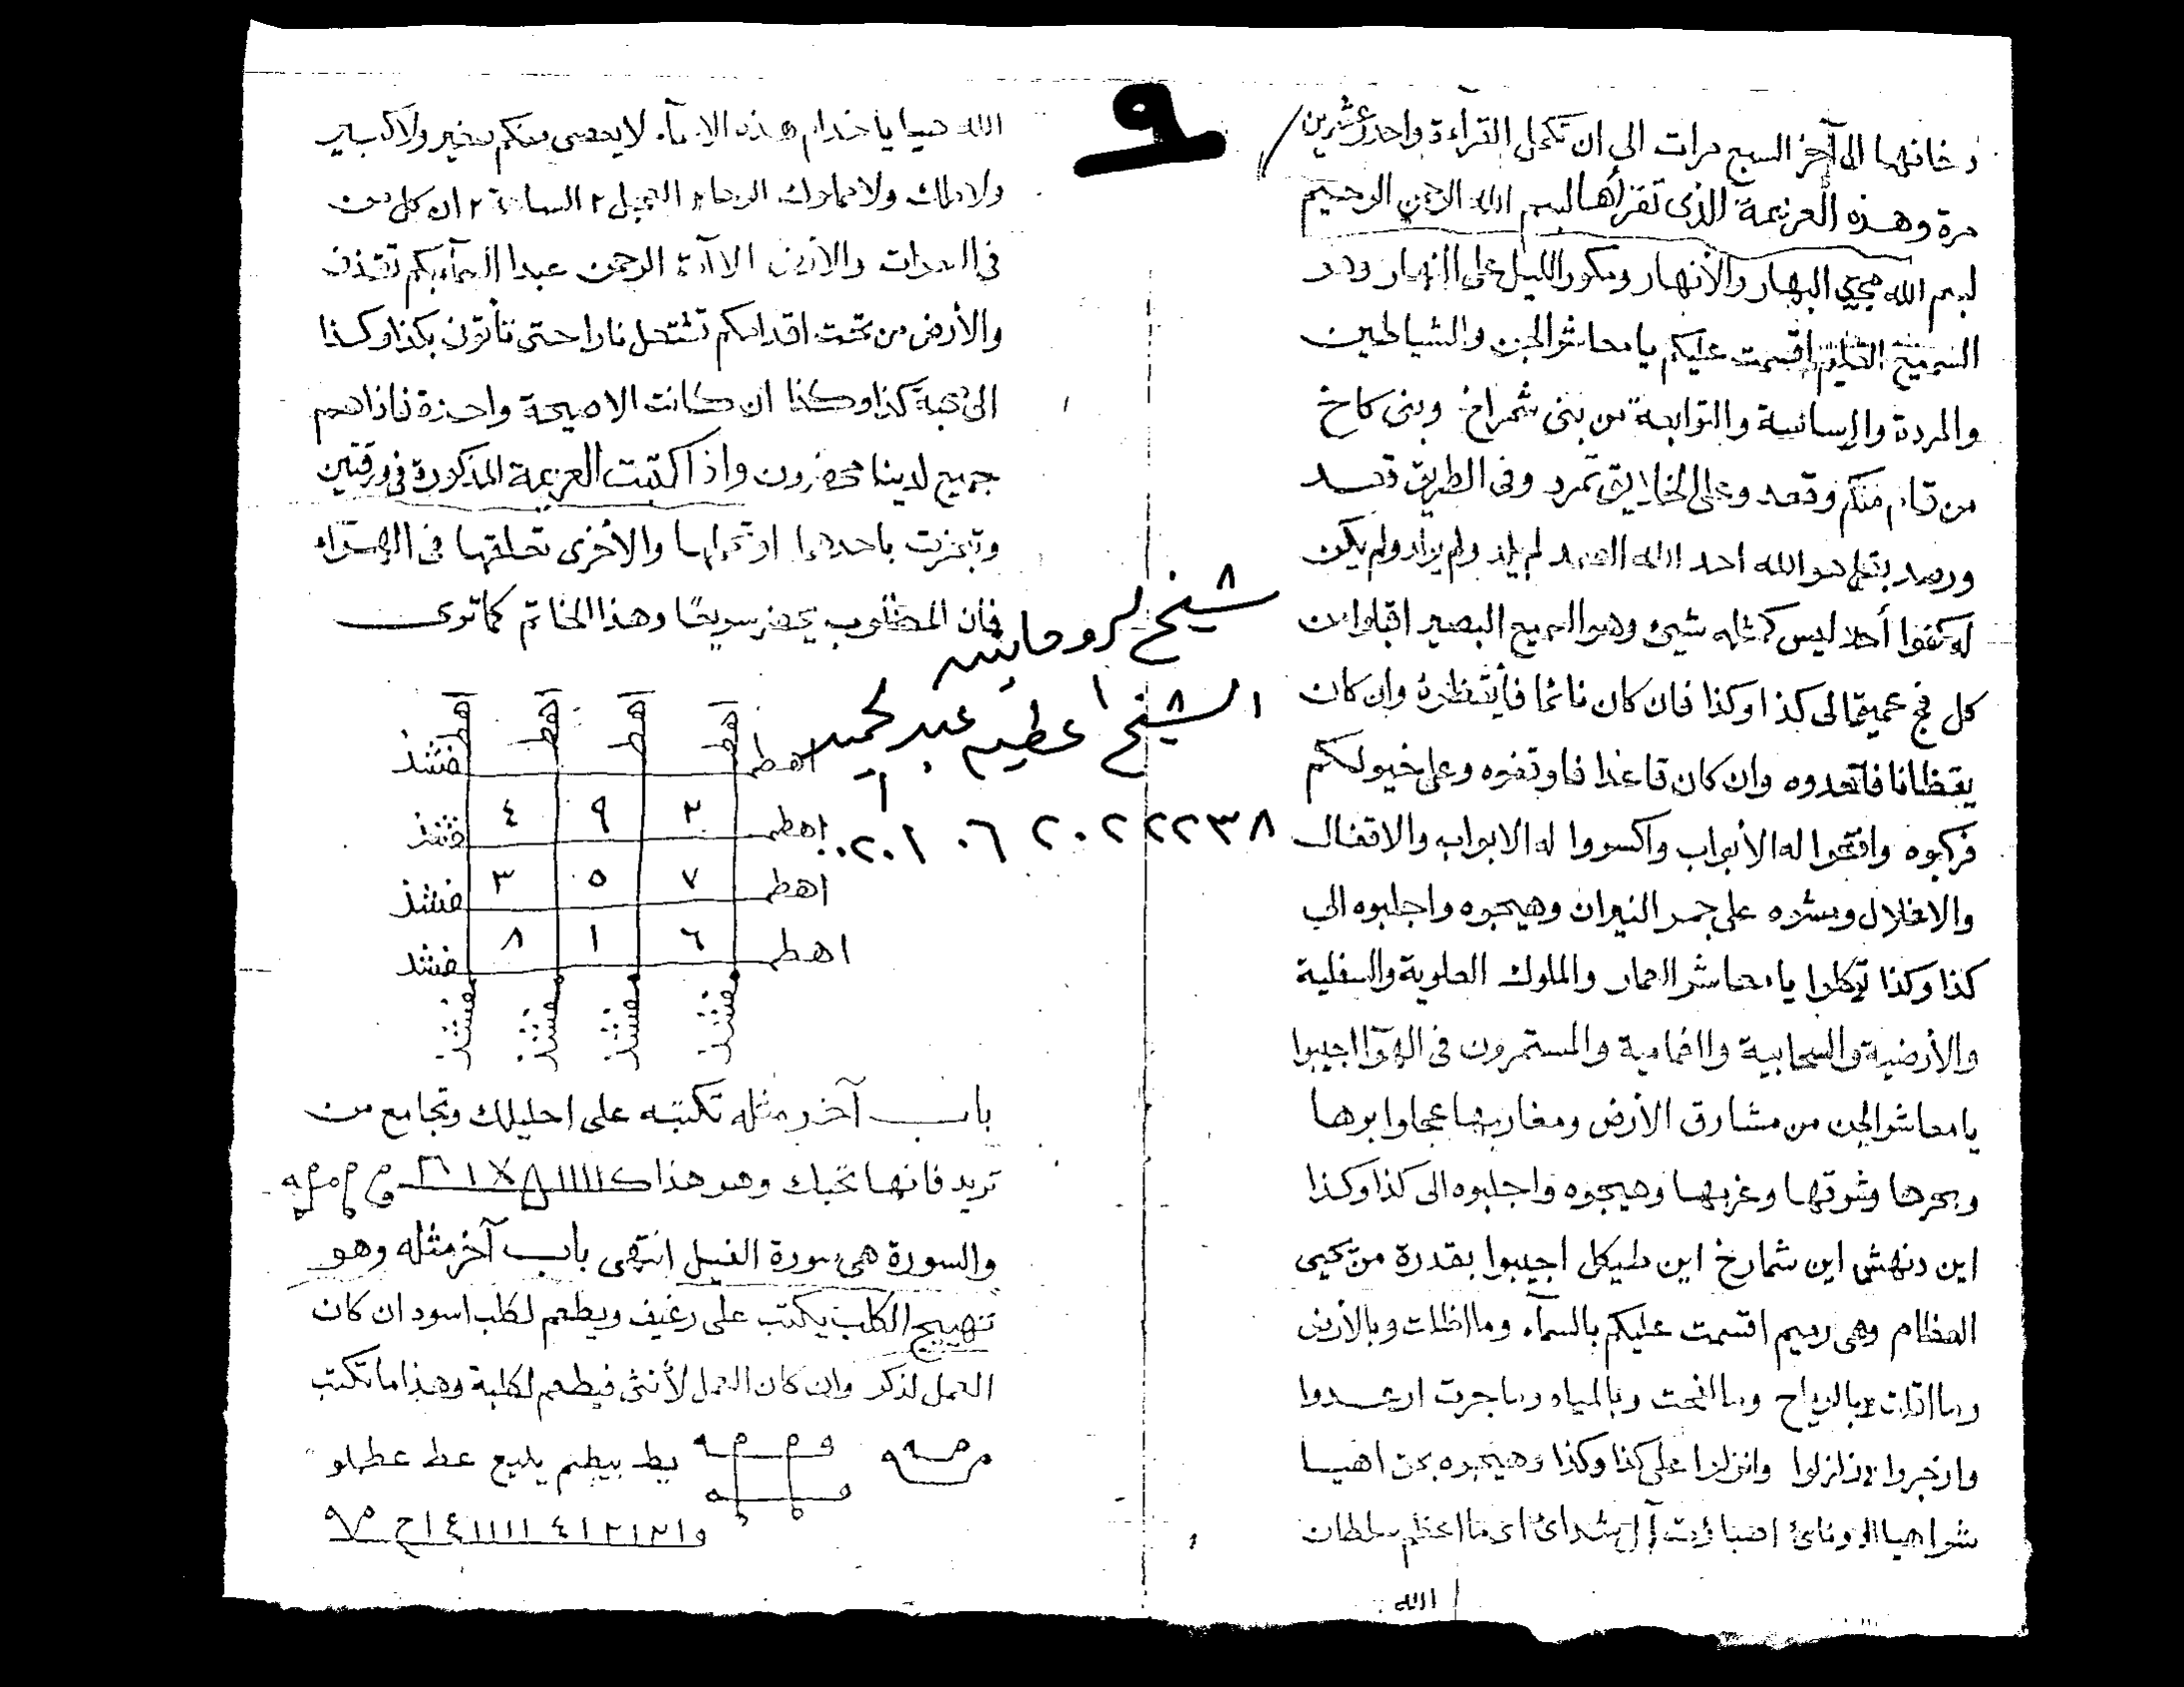 ٩
دخانها الى آخر السبع مرات الى ان تكمل القرآءة واحد وعشرين
مرة وهذه العزيمة الذى تقرأها بسم الله الرحمن الرحيم
بسم الله مجرى البحار والأنهار ومكور الليل على النهار وهو
السميع العليم اقسمت عليكم يا معاشر الجن والشياطين
والمردة والابالسة والتوابعة من بنى شمراخ وبنى كاخ
من قام منكم وقعد وعلى الخلايق تمرد وفى الطريق قعد
ورصد بقل هو الله احد الله الصمد لم يلد ولم يولد ولم يكن
له كفوا أحد ليس كمثله شيئ وهو السميع البصير اقبلوا من
كل فج عميق الى كذا وكذا فان كان نائما فأيقظوه وان كان
يقظانا فاقعدوه وان كان قاعدا فاوقفوه وعلى خيولكم
فركبوه وافتحوا له الأبواب واكسروا له الابواب والاقفال
والاغلال على جمر النيران وهيجوه واجلبوه الى
كذا وكذا توكلوا يا معاشر العمار والملوك العلوية والسفلية
والأرضية والسحابية والغمامية والمستمرون فى الهوآ اجيبوا
يا معاشر الجن من مشارق الأرض ومغاربها عجلوا برها
وبحرها وشرقها وغربها وهيجوه واجلبوه الى كذا وكذا
اين دنهش اين شمارخ اين طيكل اجيبوا بقدرة من يحيى
العظام وهى رميم اقسمت عليكم بالسمآء وما اظلت وبالأرض
وما اقلت وبالرياح وما وبالمياه وما جرت ارعدوا
وانزلوا على كذا وكذا وهيجوه بحق اهيا
شراهيا ادوناى اصباؤت آل شداى ما اعظم سلطان
الله
الله هيا يا خدام هذه الاسمآء لا يعصى منكم صغير ولا كبير
ولا ملك ولا مملوك الوحا٢ العجل٢ الساعة٢ ان كل من
فى السموات والأرض الا آت الرحمن عبدا السمآء بكم تقذف
والأرض من تحت اقدامكم تشتعل نارا حتى تأتون بكذا وكذا
الى محبة كذا وكذا ان كانت الا صيحة واحدة فاذا هم
جميع لدينا محضرون واذا كتبت العزيمة المذكورة فى ورقتين
وتبخرت باحدهما او تحملها والأخرى تعلقها فى الهوآء
فان المطلوب يحضر سريعًا وهذا الخاتم كما ترى
شيخ لروحانيه
الشيخ عطيه عبد لحميد
٠٢٠١٠٦٢٠٢٢٢٣٨
اهط اهط اهط اهط
اهطم فشذ
اهطم ٢ ٩ ٤ فشذ
اهطم ٧ ٥ ٣ فشذ
اهطم ٦ ١ ٨ فشذ
فشذ فشذ فشذ فشذ
باب آخر مثله تكتبه على احليلك وتجامع من
تريد فانها تحبك وهو هذا
والسورة هى سورة الفيل انتهى باب آخر مثله وهو
تهييج الكلب يكتب على رغيف ويطعم لكلب اسود ان كان
العمل لذكر وان كان العمل لأنثى فيطعم لكلبة وهذا ما تكتب
عط